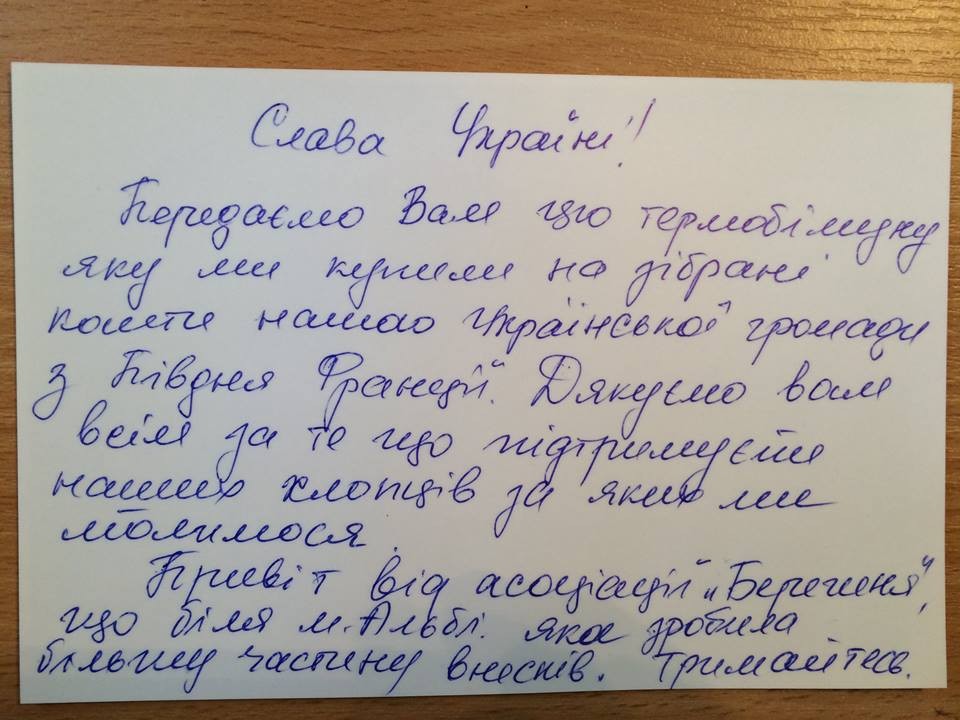 Слава Україні!
Передаємо Вам цю термобілизну
яку ми купили на зібрані
кошти нашою Української громади
з Півдня Франції. Дякуємо вам
всім за те що підтримуєте
наших хлопців за яких ми
молимося.
Привіт від асоціації „Берегиня",
що біля м. Альбі. яка зробила
більшу частину внесків. Тримайтесь.